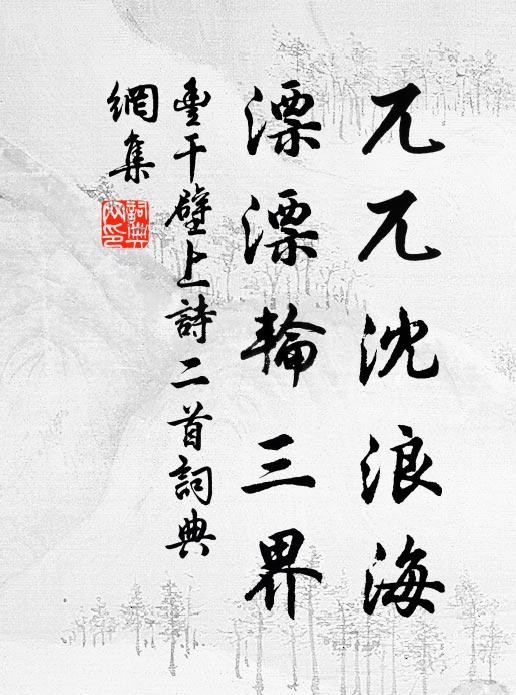 兀兀沈浪海
漂漂輪三界
豐干壁上詩二首詞典
網集
詞典網印